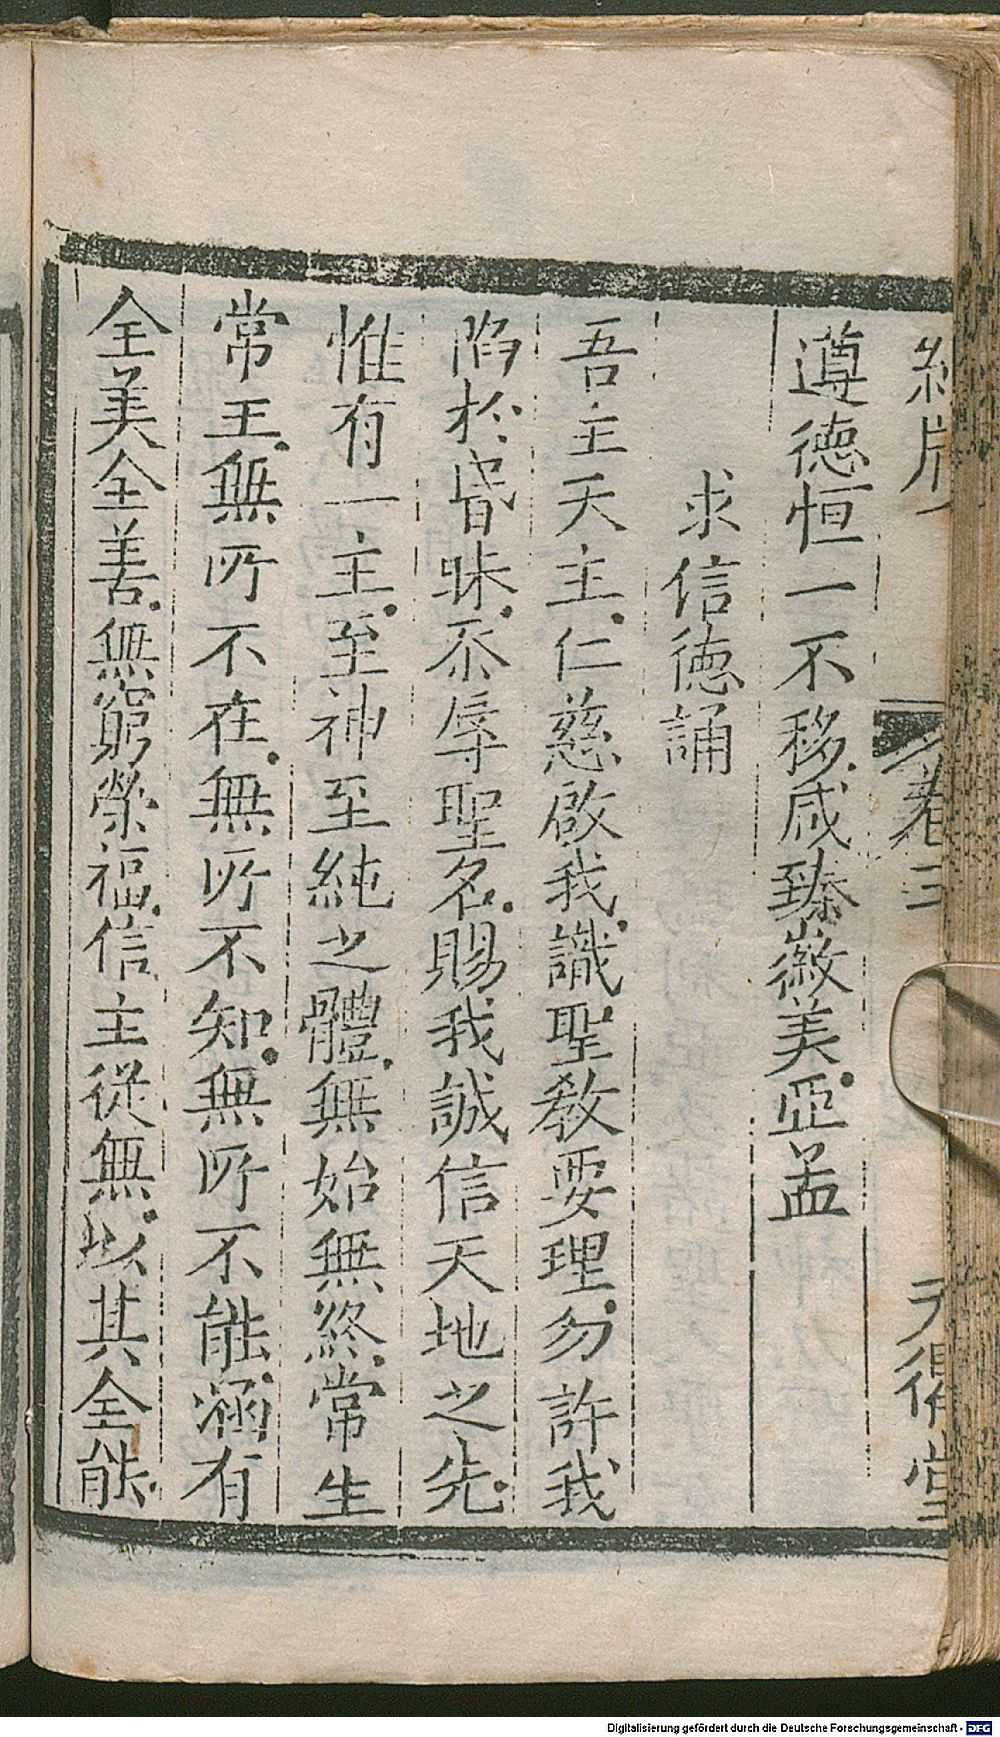 卷三
遵德恒一不移.咸臻徽美.亞孟
求信德誦
吾主天主.仁慈啟我.識聖教要理.勿許我
陷於昏昧.忝辱聖名.賜我誠信天地之先.
惟有一主.至神至純之體.無始無終.常生
常王.無所不在.無所不知.無所不能.涵有
全美全善.無窮榮福.信主從無.以其全能.
Digitalisierung gefördert durch die Deutsche Forschungsgemeinschaft - DFG